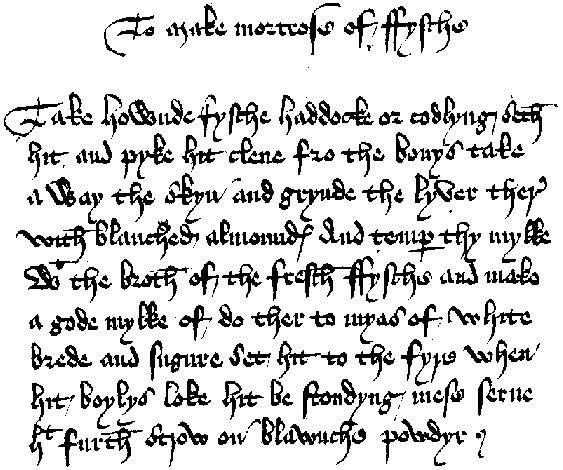 To make mortross of ffysche
Take hownde fysche haddocke or codlyng seth
hit and pyke hit clene fro the bonys take
a way the skyn and grynde the lyver ther
with blanched almondes And temper thy mylke
wt the broth of the fresch ffysche and make
a gode mylke of do ther to myas of white
brede and sugure set hit to the fyre when
hit boylys loke hit be stondyng mess serue
ht furth strow on blawnche powdyr